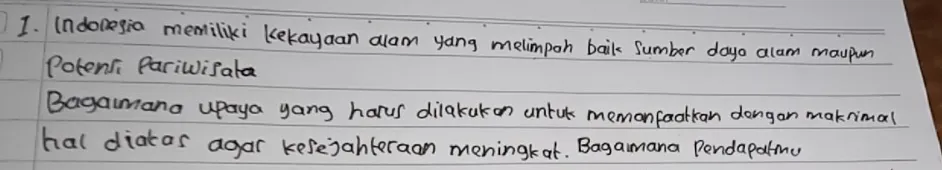 1. Indonesia memiliki kekayaan alam yang melimpah baik Sumber daya alam maupun
Potensi Pariwisata
Bagaimana upaya yang harus dilakukan untuk memanfaatkan dengan maksimal
hal diatas agar kesejahteraan meningkat. Bagaimana Pendapatmu